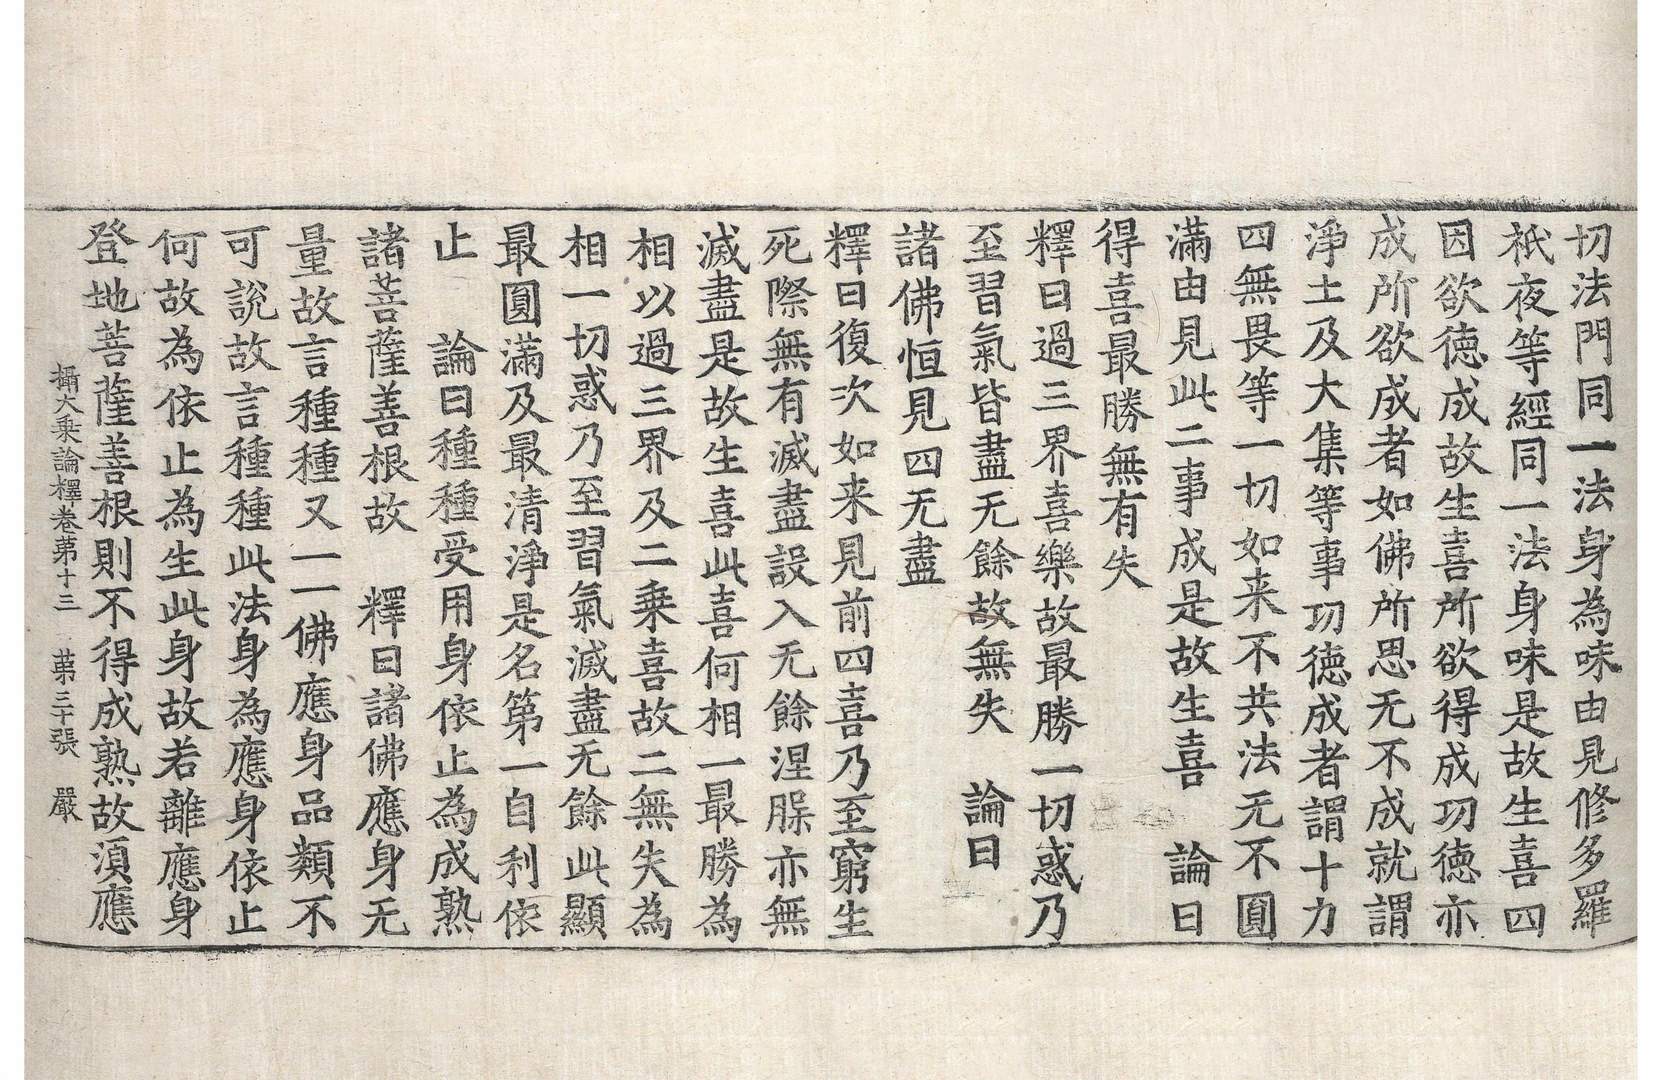 切法門同一法身為味由見修多羅
祇夜等經同一法身味是故生喜四
因欲徳成故生喜所欲得成功徳亦
成所欲成者如佛所思无不成就謂
淨土及大集等事功徳成者謂十力
四無畏等一切如来不共法无不圓
滿由見此二事成是故生喜　論曰
得喜最勝無有失
釋曰過三界喜樂故最勝一切惑乃
至習氣皆盡无餘故無失　論曰
諸佛恒見四无盡
釋曰復次如来見前四喜乃至窮生
死際無有滅盡設入无餘涅槃亦無
滅盡是故生喜此喜何相一最勝為
相以過三界及二乗喜故二無失為
相一切惑乃至習氣滅盡无餘此顯
最圓滿及最清淨是名第一自利依
止　論曰種種受用身依止為成熟
諸菩薩善根故　釋曰諸佛應身无
量故言種種又一一佛應身品類不
可說故言種種此法身為應身依止
何故為依止為生此身故若離應身
登地菩薩善根則不得成熟故須應
攝大乗論釋卷第十三　第三十張　嚴